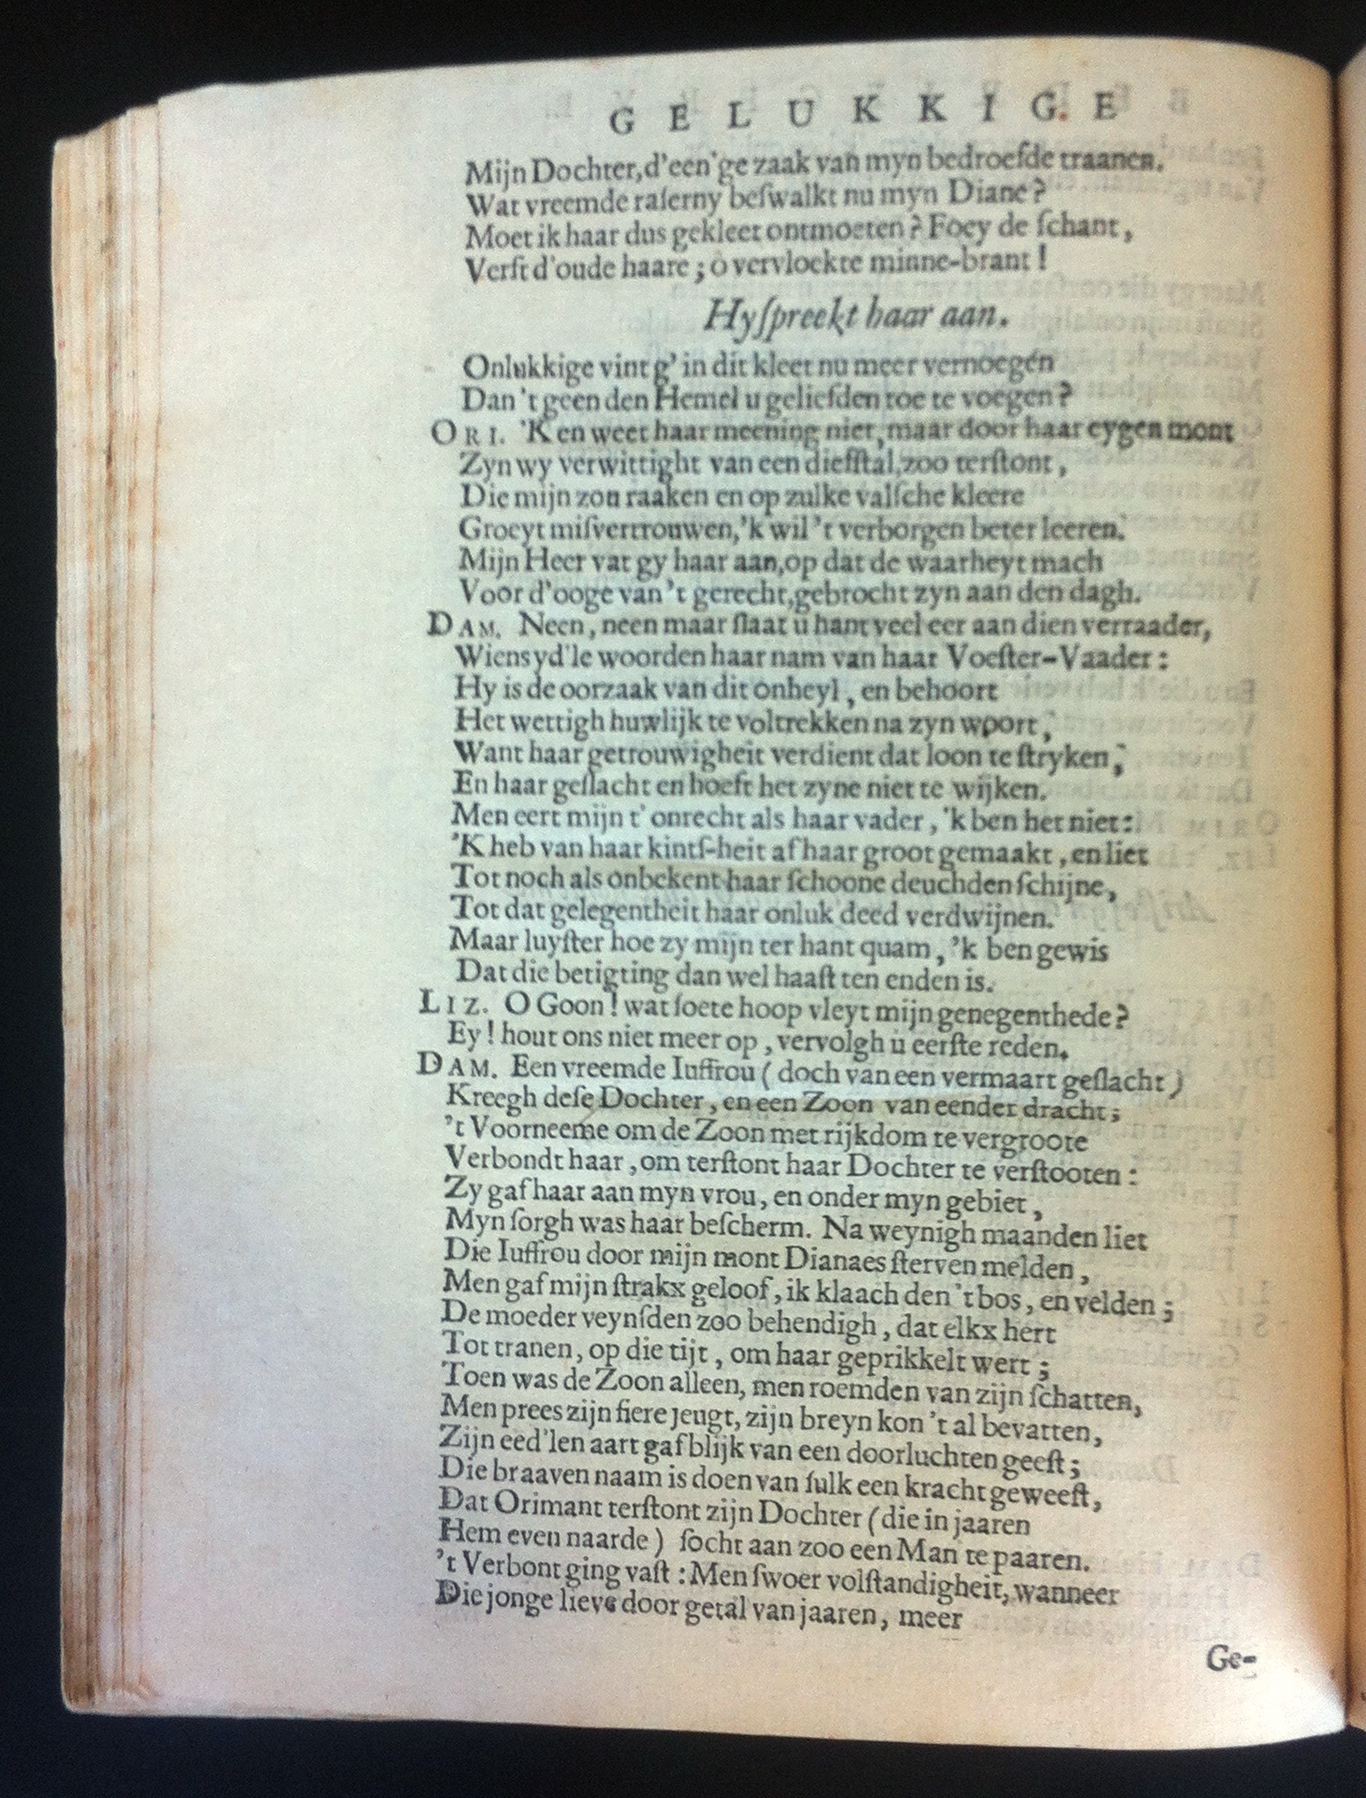 GELUKKIGE
Mijn Dochter, d'een'ge zaak van myn bedroefde traanen.
Wat vreemde raſerny beſwalkt nu myn Diane?
Moet ik haar dus gekleet ontmoeten? Foey de ſchant,
Verſt d'oude haare; o vervloekte minne-brant!
Hy ſpreekt haar aan.
Onlukkige vint g' in dit kleet nu meer vernoegen
Dan 't geen den Hemel u geliefden toe te voegen?
ORI. 'K en weet haar meening niet, maar door haar eygen mont
Zyn wy verwittight van een diefſtal, zoo terſtont,
Die mijn zou raaken en op zulke valſche kleere
Groeyt miſvertrouwen, 'k wil 't verborgen beter leeren.
Mijn Heer vat gy haar aan, op dat de waarheyt mach
Voor d'ooge van 't gerecht, gebrocht zyn aan den dagh.
DAM. Neen, neen maar ſlaat u hant veel eer aan dien verraader,
Wiens yd'le woorden haar nam van haar Voeſter-Vaader:
Hy is de oorzaak van dit onheyl, en behoort
Het wettigh huwlijk te voltrekken na zyn woort,
Want haar getrouwigheit verdient dat loon te ſtryken,
En haar geſlacht en hoeft het zyne niet te wijken.
Men eert mijn t' onrecht als haar vader, 'k ben het niet:
'K heb van haar kintſ-heit af haar groot gemaakt, en liet
Tot noch als onbekent haar ſchoone deuchden ſchijne,
Tot dat gelegentheit haar onluk deed verdwijnen.
Maar luyſter hoe zy mijn ter hant quam, 'k ben gewis
Dat die betigting dan wel haaſt ten enden is.
LIZ. O Goon! wat ſoete hoop vleyt mijn genegenthede?
Ey! hout ons niet meer op, vervolgh u eerſte reden.
DAM. Een vreemde Iuffrou (doch van een vermaart geſlacht)
Kreegh deſe Dochter, en een Zoon van eender dracht;
't Voorneeme om de Zoon met rijkdom te vergroote
Verbondt haar, om terſtont haar Dochter te verſtooten:
Zy gaf haar aan myn vrou, en onder myn gebiet,
Myn ſorgh was haar beſcherm. Na weynigh maanden liet
Die Iuffrou door mijn mont Dianaes ſterven melden,
Men gaf mijn ſtrakx geloof, ik klaach den 't bos, en velden;
De moeder veynſden zoo behendigh, dat elkx hert
Tot tranen, op die tijt, om haar geprikkelt wert;
Toen was de Zoon alleen, men roemden van zijn ſchatten,
Men prees zijn fiere jeugt, zijn breyn kon 't al bevatten,
Zijn eed'len aart gaf blijk van een doorluchten geeſt;
Die braaven naam is doen van ſulk een kracht geweeſt,
Dat Orimant terſtont zijn Dochter (die in jaaren
Hem even naarde) ſocht aan zoo een Man te paaren.
't Verbont ging vaſt: Men ſwoer volſtandigheit, wanneer
Die jonge lieve door getal van jaaren, meer
Ge-